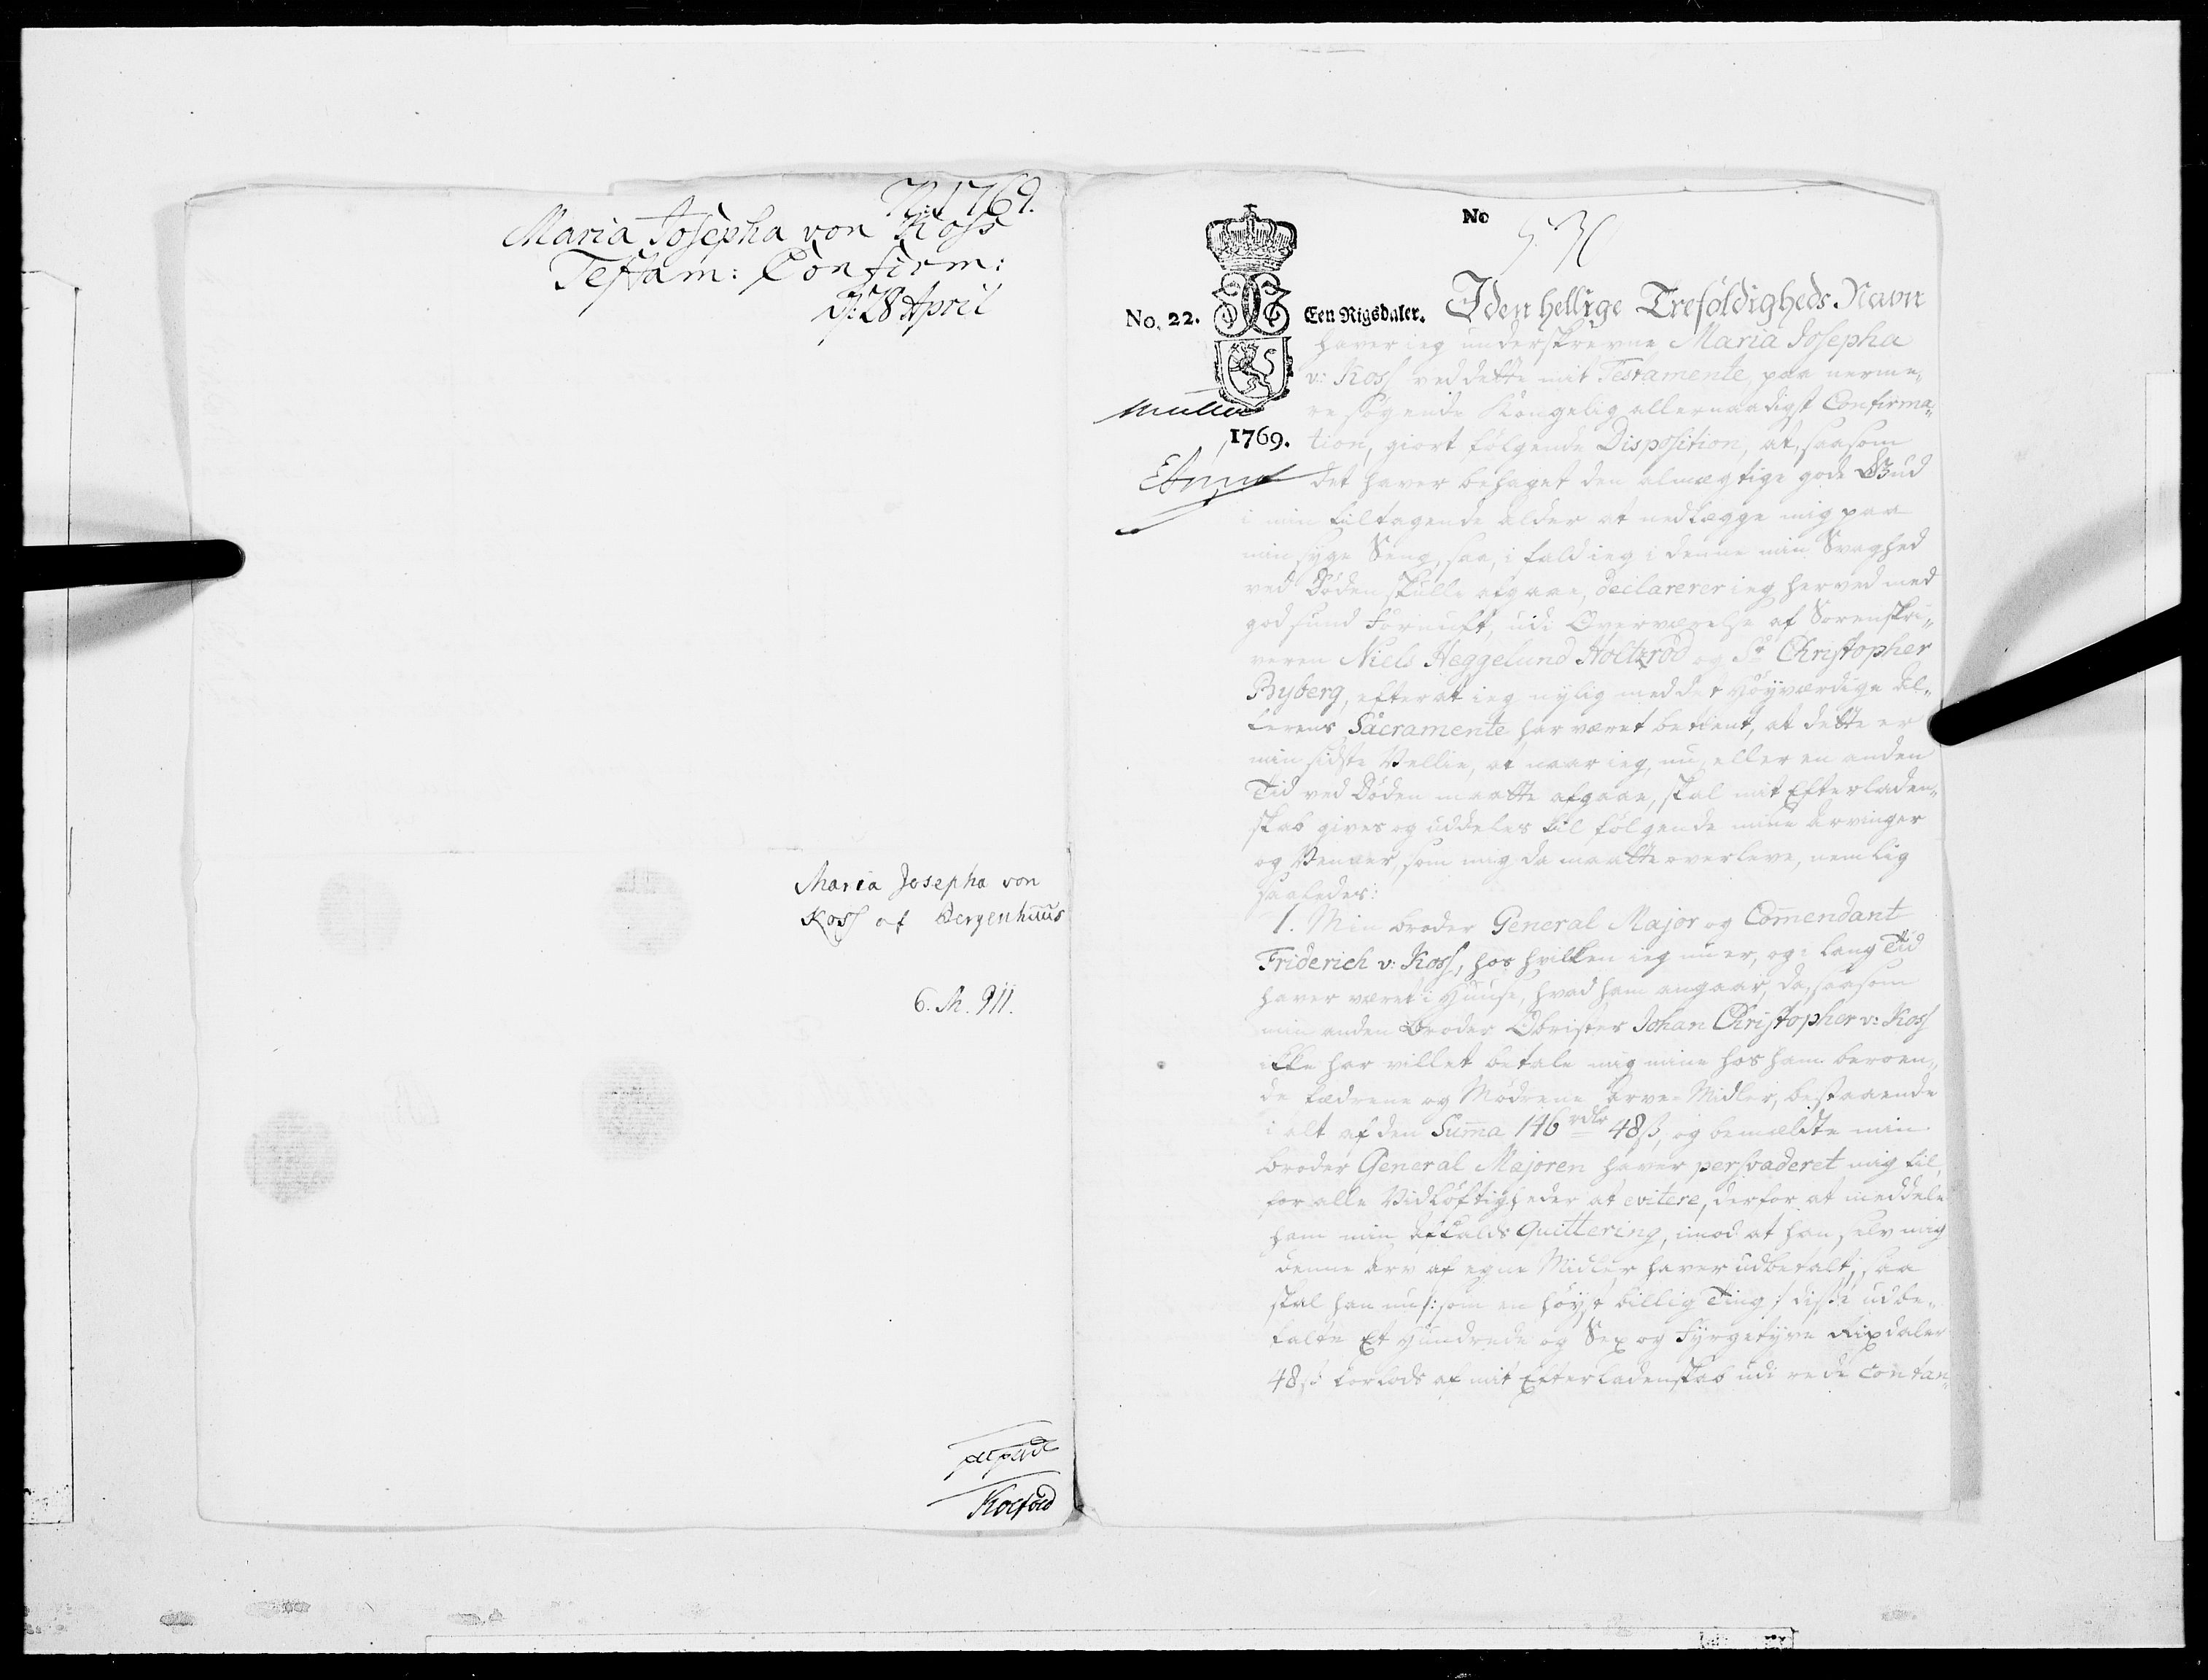 N: 1769.
Maria Josepha von Koss
Testam: Confirm:
d: 28 April
Maria Josepha von
Koss af Bergenhuus
6. M. 911.
Koefoed
No
No. 22.
Een Rigsdaler.
Müller
1769.
I den hellige Treføldigheds Navn
haver ieg underskrevne Maria Josepha
v: Koss ved dette mit Testamente, paa nerme„
re søgende Kongelig allernaadigst Confirma„
tion, giort følgende Disposition, at, saasom
det haver behaget den almægtige gode Gud
i min tiltagende Alder at nedlægge mig paa
min syge Seng, saa, i fald ieg i denne min Svaghed
ved Døden skulle afgaae, declarerer ieg herved med
god sund Fornuft, udi Overværelse af Sorenskri„
veren Niels Heggelund Høltzrod og Sr Christopher
Byberg, efter at ieg nylig med det Høyværdige Al„
terens Sacramente har været betient, at dette er
min sidste Villie, at naar ieg, nu, eller en anden
Tid ved Døden maatte afgaae, skal mit Efterladen„
skab gives og uddeles til følgende mine Arvinger
og Venner, som mig da maatte overleve, nemlig
saaledes:
1. Min broder General Major og Comendant
Friderich v: Koss, hos hvilken ieg nu er, og i lang Tid
haver været i Huuse, hvad ham angaar, da, saasom
min anden Broder Obrister Johan Christopher v: Koss
ikke har villet betale mig mine hos ham beroen„
de Fædrene og Mødrene Arve-Midler, bestaaende
i alt af den Summa 146 rdlr 48 ß, og bemældte min
broder General Majoren haver persvaderet mig til,
for alle Vidløftigheder at evitere, derfor at meddele
ham min Afkalds Quittering, imod at han selv mig
denne Arv af egne Midler haver udbetalt; saa
skal han nu /: som en høyst billig Ting :/ disse udbe„
talte Et Hundrede og Sex og Fyrgetyve Rixdaler
48 ß forlods af mit Efterladenskab udi rede Contan„